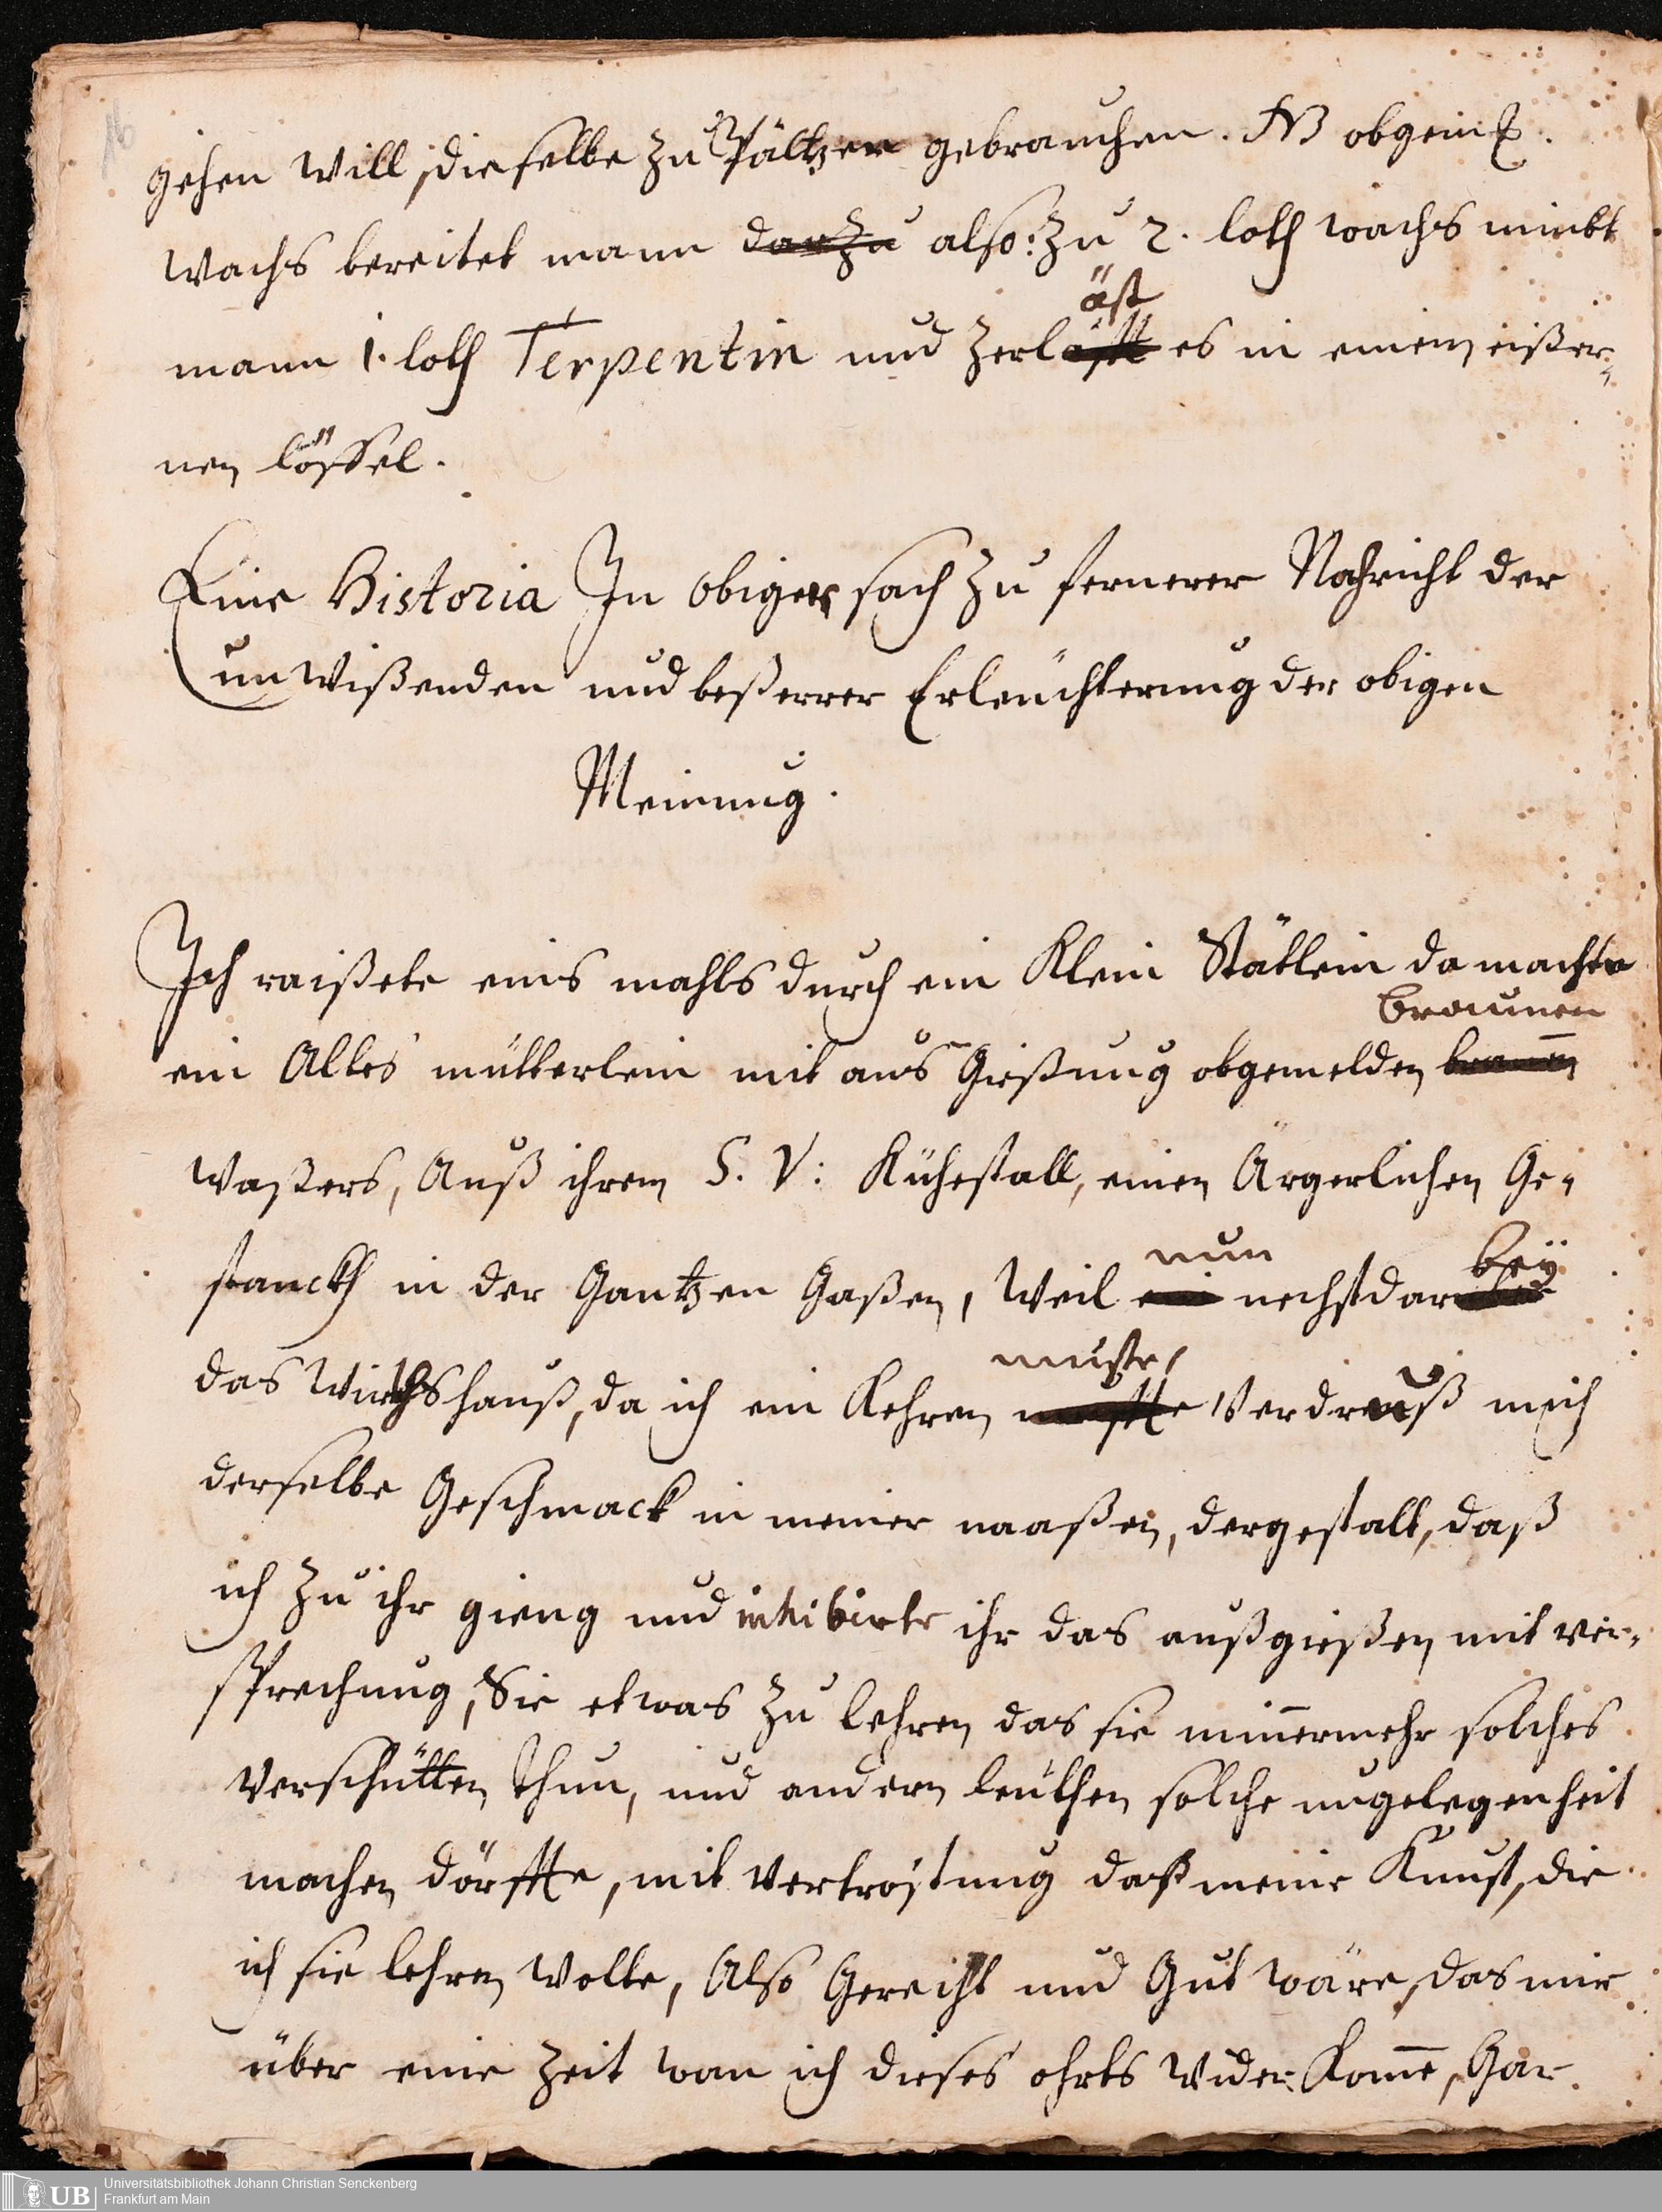 16
gehen will, dieselbe zu Pältzer gebrauchen. NB obgem.
wachs bereitet mann darzu also: zu 2. loth wachs nimbt
mann 1. loth Terpentin und zerläst es in einem eißer-
äst
nen löffel.
Eine Historia In obiger sach zu fernerer Nachricht der
unwißenden und beßerrer Erleüchterung der obigen
Meinung.
Ich raißete eins mahls durch ein Klein Stätlein da machte
braunen
ein Altes mütterlein mit aus Gießung obgemelden braunen
waßers, Auß ihrem S. V: Kühestall, einen Ärgerlichen Ge-
stanckh in der Gantzen Gaßen, Weil nun nechstdarbey
das Wirthshauß, da ich ein Kehren muste, Verdreuß mich
derselbe Geschmack in meiner naaßen, dergestalt, daß
ich zu ihr gieng und inhibirte ihr das außgießen mit ver-
sprechung, Sie etwas zu lehren das sie nim̄ermehr solches
verschütten thun, und andern leüthen solche ungelegenheit
machen dörffte, mit vertröstung daß meine Kunst, die
ich sie lehren wolte, Also Gerecht und Gut wäre, das mir
über eine Zeit wan ich dieses ohrts wider Kom̄e, Gar
Universitätsbibliothek Johann Christian Senckenberg
Frankfurt am Main
UB